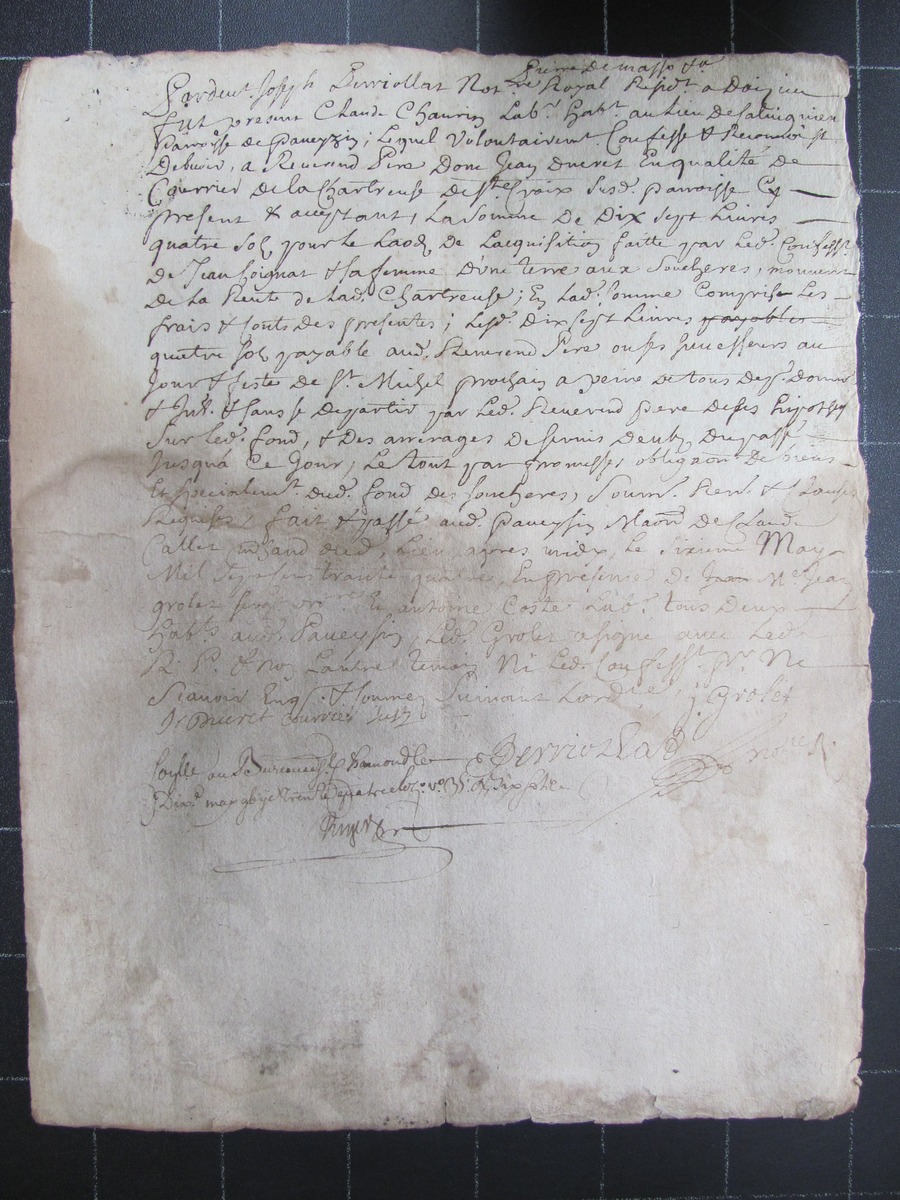 Pierre de masso
Pardevt. Joseph Perriollat Notre. Royal Residt. a Doizieu
fut present Claude Chavrin Labr. habt. au lieu de
parroisse de paveyzin; Lequel Volontairemt. Confesse & Reconnoist
Debvoir, a Reverend Pere Dom Jean Ducret En qualité de
Courrier de la Chartreuse de Ste. Croix susd. parroisse Cy
present & acceptant, La Somme De Dix sept Livres
quatre sols pour le Laods De Lacquisition faitte par Led. Confesst.
de Jean & sa femme D'une terre aux Soucheres, mouvent
de la Rente de Lad. Chartreuse; En Lad. somme Comprise Les
frais & Couts des presentes; Lesd. Dix sept Livres payables
quatre sols payable aud. Reverend Pere ou ses successeurs au
Jour & feste De St. Michel prochain a peine De tous Desp. Dom
& Int. & sans se Departir par Led. Reverend pere De ses hipot
Sur Led. fond, & Des arrerages De servis Deubs Du passé
Jusqu'à Ce Jour, Le tout par promesses obligaon. De biens
Et specialemt. dud. fond des soucheres, Soum. Ren. &
Requises, fait & passé aud. Paveyzin Maon. de Claude
Callet md aud. Lieu, apres midy Le Sixieme May
Mil sept cens trante quatre, En presence De Jean Me. Jean
grolet & antoine Coste Labr. tous Deux
habts. aud. Paveyzin, Led. Grolet a signé avec Led.
R. P. & non L'autre temoin Ni Led. Confesst. pr. Ne
Scavoir Enq. & Sommez Suivant L'ordce. J. Grolet
D. Ducret courrier
Perriollat nore. R.
au Bureau de St. Chamond Le
Dixe. may gbije trente quatre